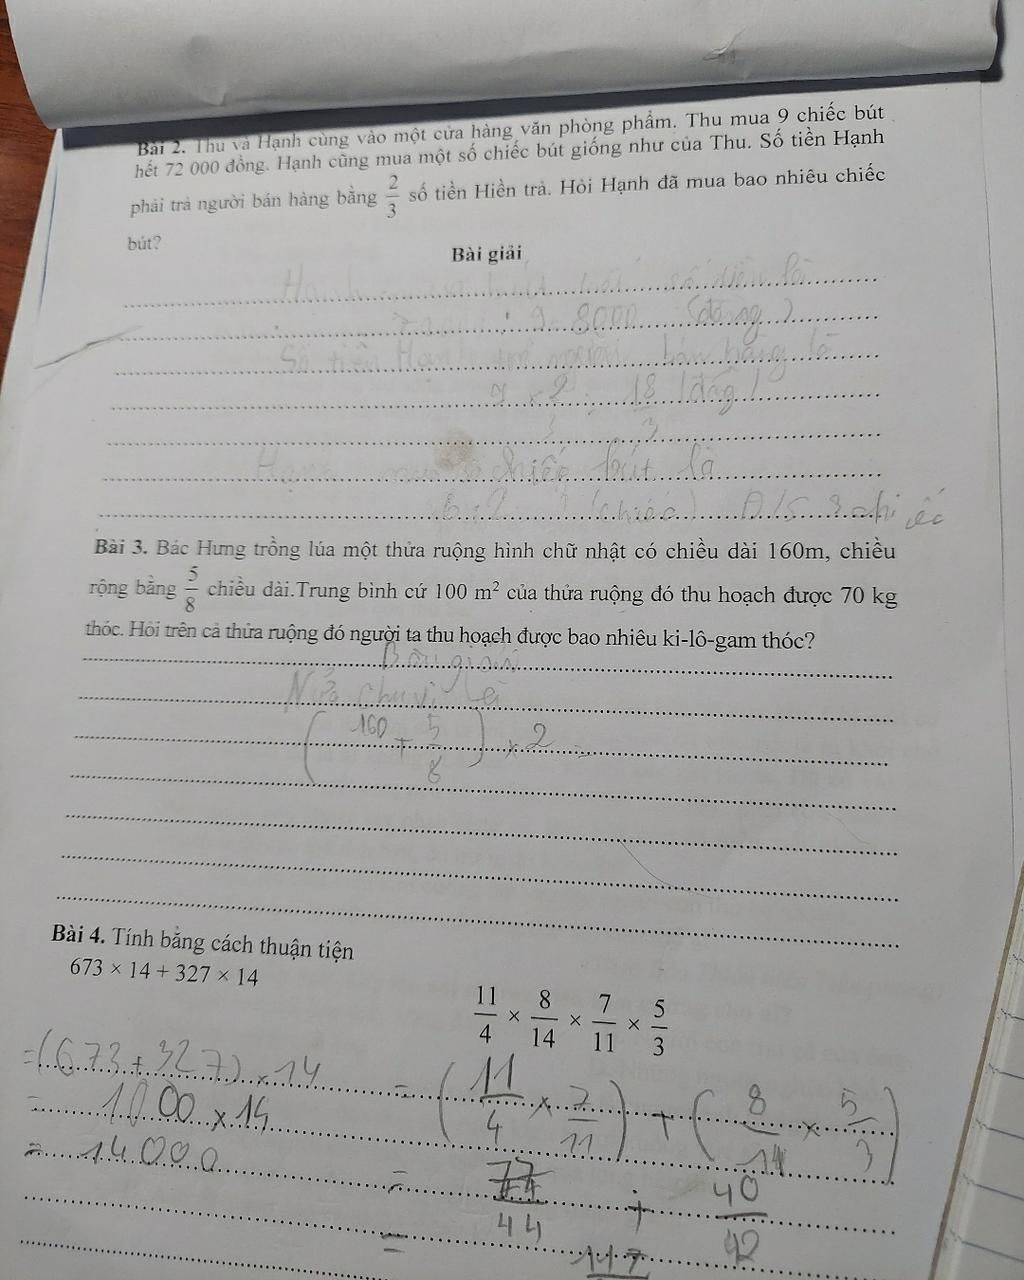 Bài 2. Thu và Hạnh cùng vào một cửa hàng văn phòng phẩm. Thu mua 9 chiếc bút
hết 72 000 đồng. Hạnh cũng mua một số chiếc bút giống như của Thu. Số tiền Hạnh
phải trả người bán hàng bằng 2/3 số tiền Hiền trả. Hỏi Hạnh đã mua bao nhiêu chiếc
bút?
Bài giải
Hạnh số tiền là
9 = 8000 (đồng)
Số tiền Hạnh bán hàng là
9 × 2/3 = 18/3 (đồng)
Hạnh mua số chiếc bút là
(chiếc) Đ/S 3 chiếc
Bài 3. Bác Hưng trồng lúa một thửa ruộng hình chữ nhật có chiều dài 160m, chiều
rộng bằng 5/8 chiều dài.Trung bình cứ 100 m² của thửa ruộng đó thu hoạch được 70 kg
thóc. Hỏi trên cả thửa ruộng đó người ta thu hoạch được bao nhiêu ki-lô-gam thóc?
Bài giải
Nửa chu vi là
(160 + 5/8) × 2 =
Bài 4. Tính bằng cách thuận tiện
673 × 14 + 327 × 14
11/4 × 8/14 × 7/11 × 5/3
=(673 + 327) × 14
= 1000 × 14
= 14000
= (11/4 × 7/11) + (8/14 × 5/3)
= 77/44 + 40/42
= 117